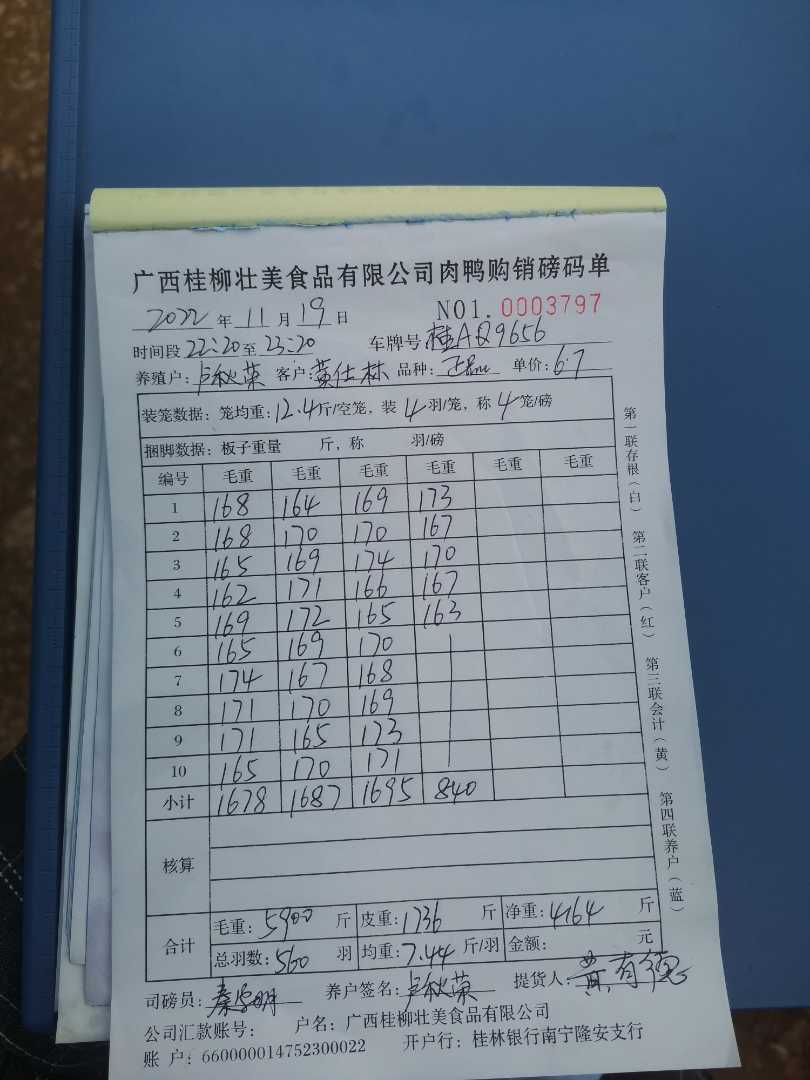 广西桂柳壮美食品有限公司肉鸭购销磅码单
2022年11月19日 NO1.0003797
时间段22:20至23:20 车牌号桂AQ9656
养殖户:卢秋荣 客户:黄仕林 品种: 单价:6.7
装笼数据:笼均重:12.4斤/空笼,装4羽/笼,称4笼/磅
捆脚数据:板子重量 斤,称 羽/磅
编号 毛重 毛重 毛重 毛重 毛重 毛重
1 168 164 169 173
2 168 170 170 167
3 165 169 174 170
4 162 171 166 167
5 169 172 165 163
6 165 169 170
7 174 167 168
8 171 170 169
9 171 165 173
10 165 170 171
小计 1678 1687 1695 840
核算
合计 毛重:5900斤 皮重:1736斤 净重:4164斤
总羽数:560羽 均重:7.44斤/羽 金额: 元
司磅员:秦 明 养户签名:卢秋荣 提货人:黄有德
公司汇款账号: 户名:广西桂柳壮美食品有限公司
账 户:660000014752300022 开户行:桂林银行南宁隆安支行
第一联存根(白) 第二联客户(红) 第三联会计(黄) 第四联养户(蓝)